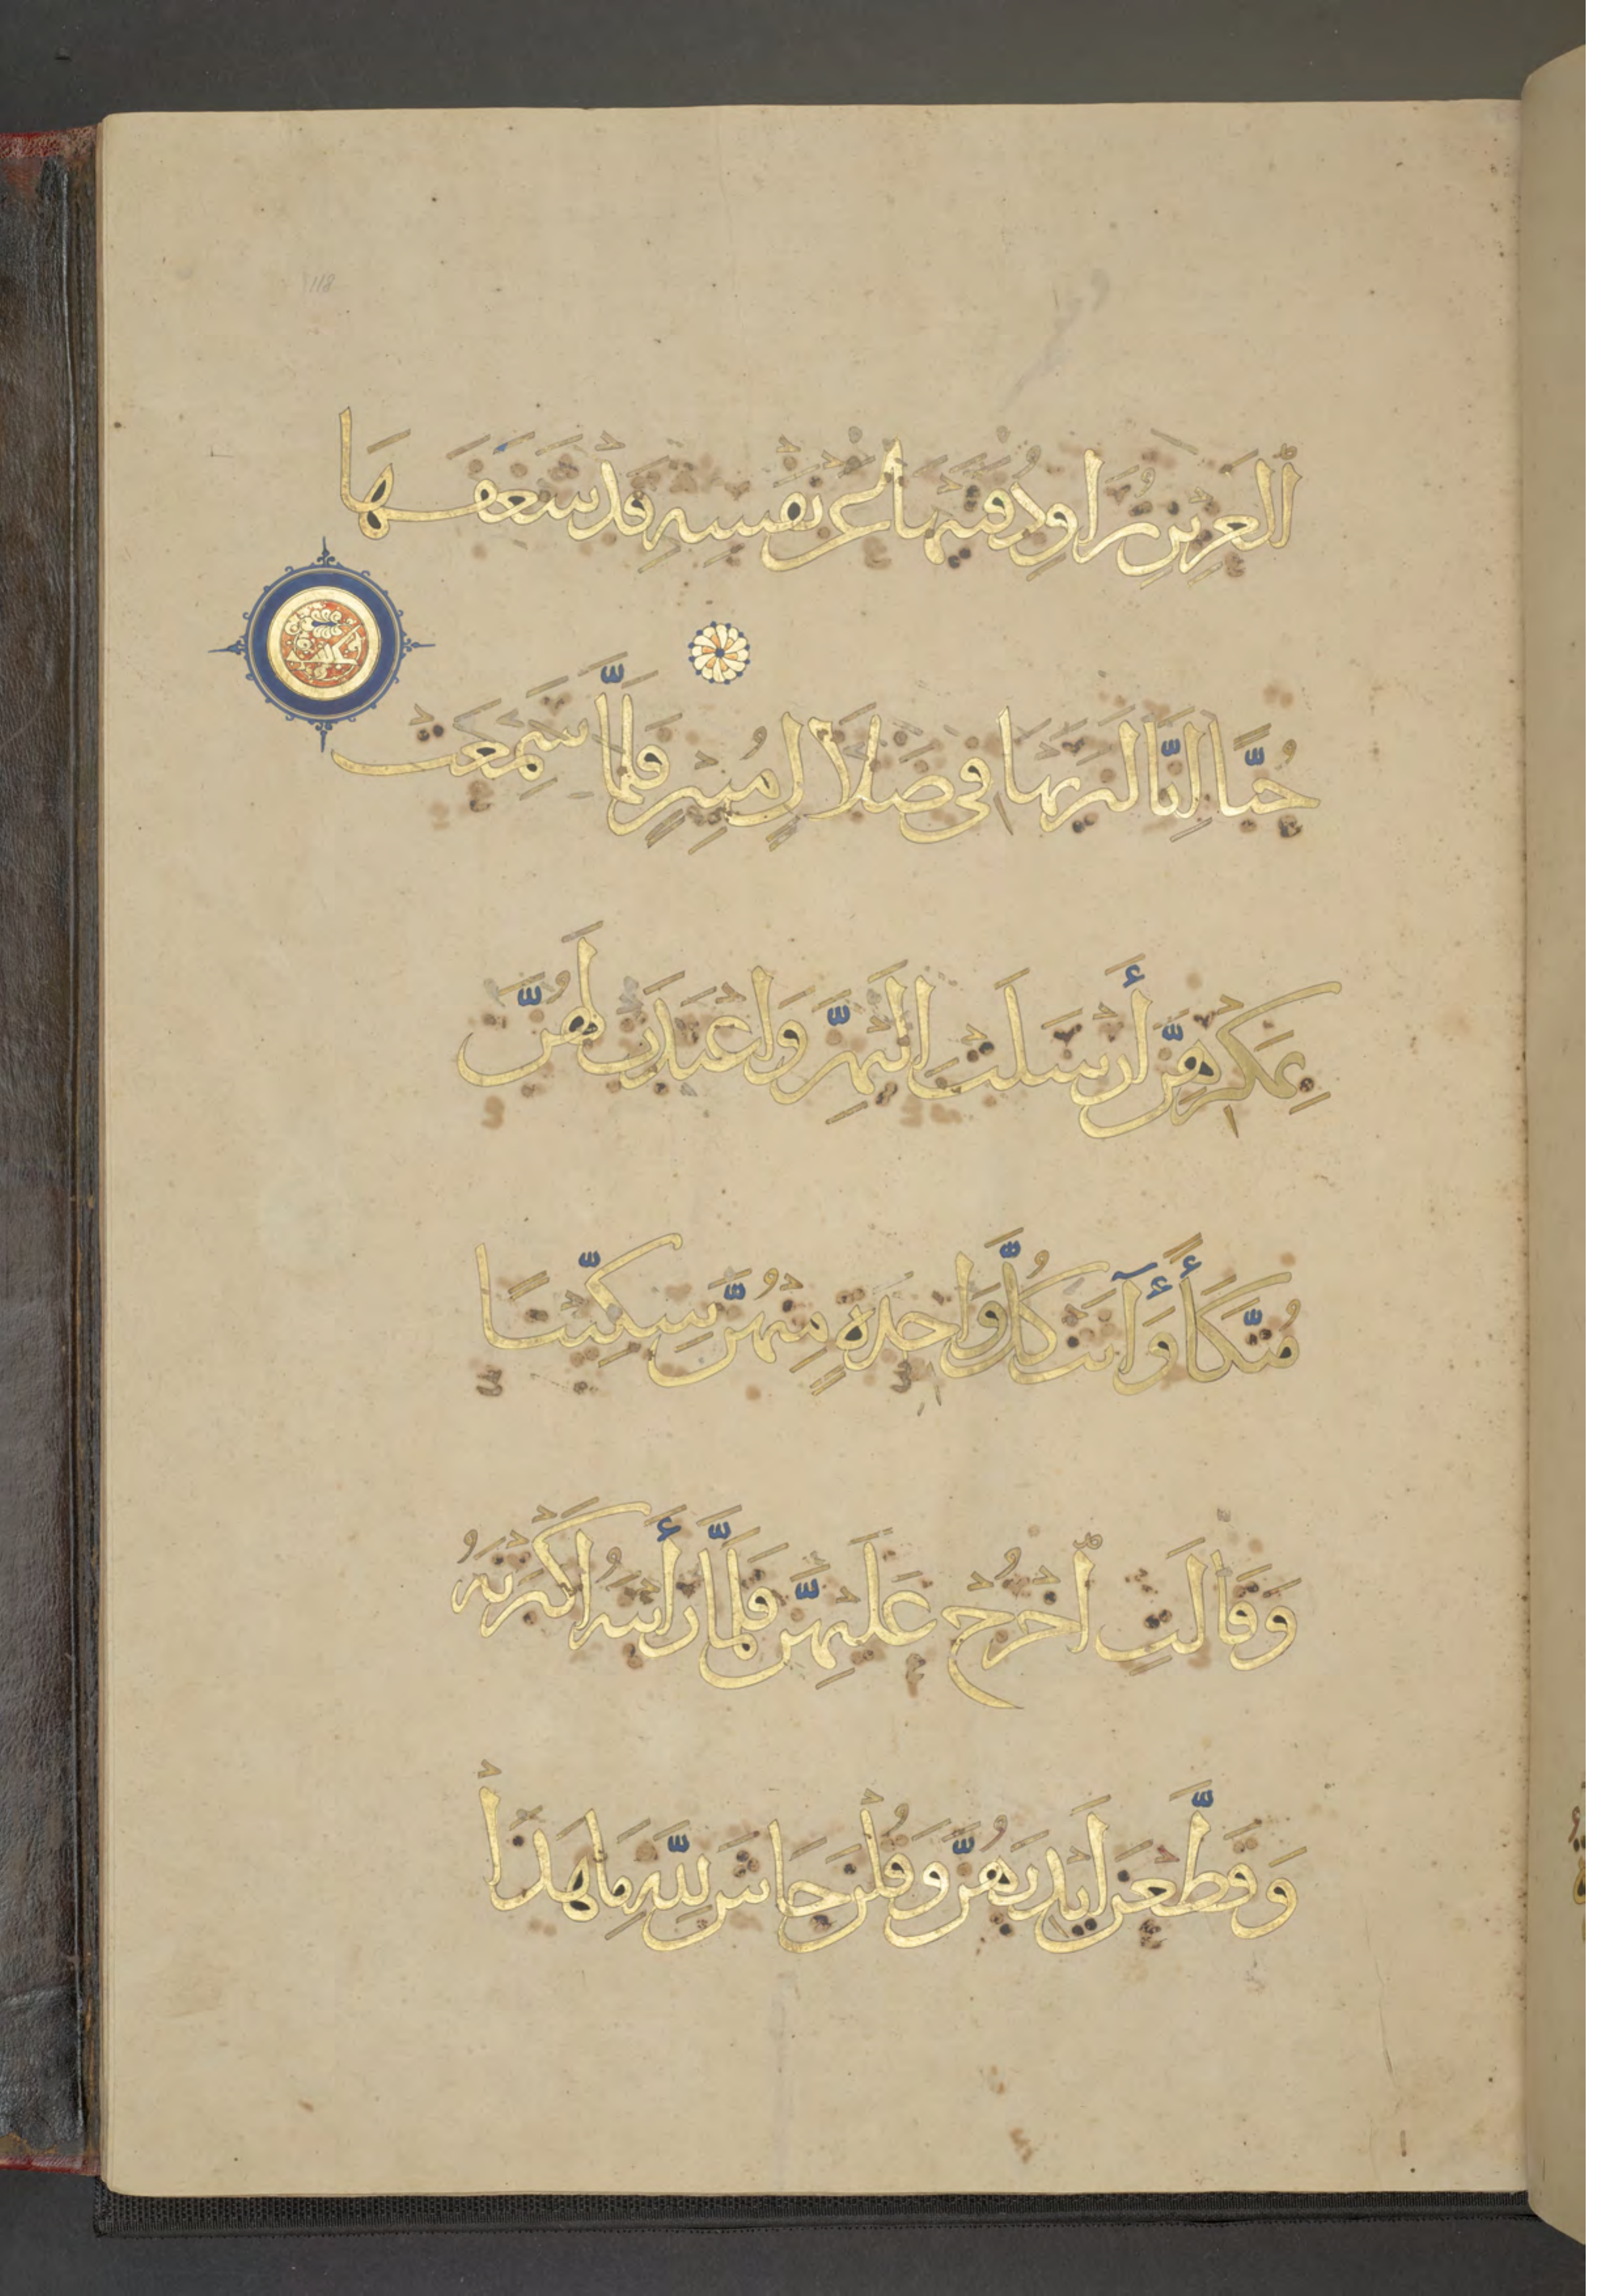 ٱلْعَزِيزِ تُرَاوِدُ فَتَيهَا عَنْ نَفْسِهِ قَدْ شَغَفَهَا
حُبًّا إِنَّا لَنَرَيهَا فِى ضَلَالٍ مُبِينٍ فَلَمَّا سَمِعَتْ
بِمَكْرِهِنَّ أَرْسَلَتْ إِلَيْهِنَّ وَاَعْتَدَتْ لَهُنَّ
مُتَّكَأً وَأٓتَتْ كُلَّ وَاحِدَةٍ مِنْهُنَّ سِكِّينًا
وَقَالَتِ ٱخْرُجْ عَلَيْهِنَّ فَلَمَّا رَأَيْنَهُ اَكْبَرْنَهُ
وَقَطَّعْنَ اَيْدِيَهُنَّ وَقُلْنَ حَاشَ لِلَّهِ مَا هَذَا
118